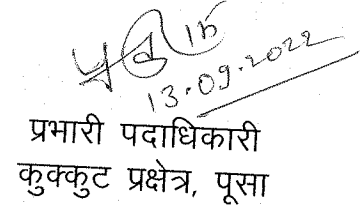 13.09.2022
प्रभारी पदाधिकारी
कुक्कुट प्रक्षेत्र, पूसा